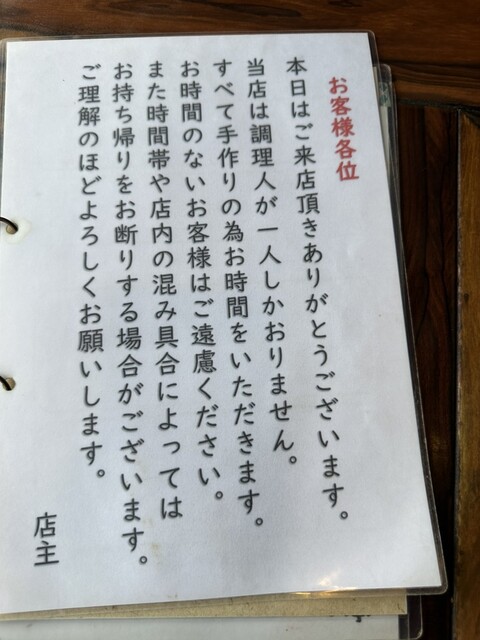 お客様各位
本日はご来店頂きありがとうございます。
当店は調理人が一人しかおりません。
すべて手作りの為お時間をいただきます。
お時間のないお客様はご遠慮ください。
また時間帯や店内の混み具合によっては
お持ち帰りをお断りする場合がございます。
ご理解のほどよろしくお願いします。
店主